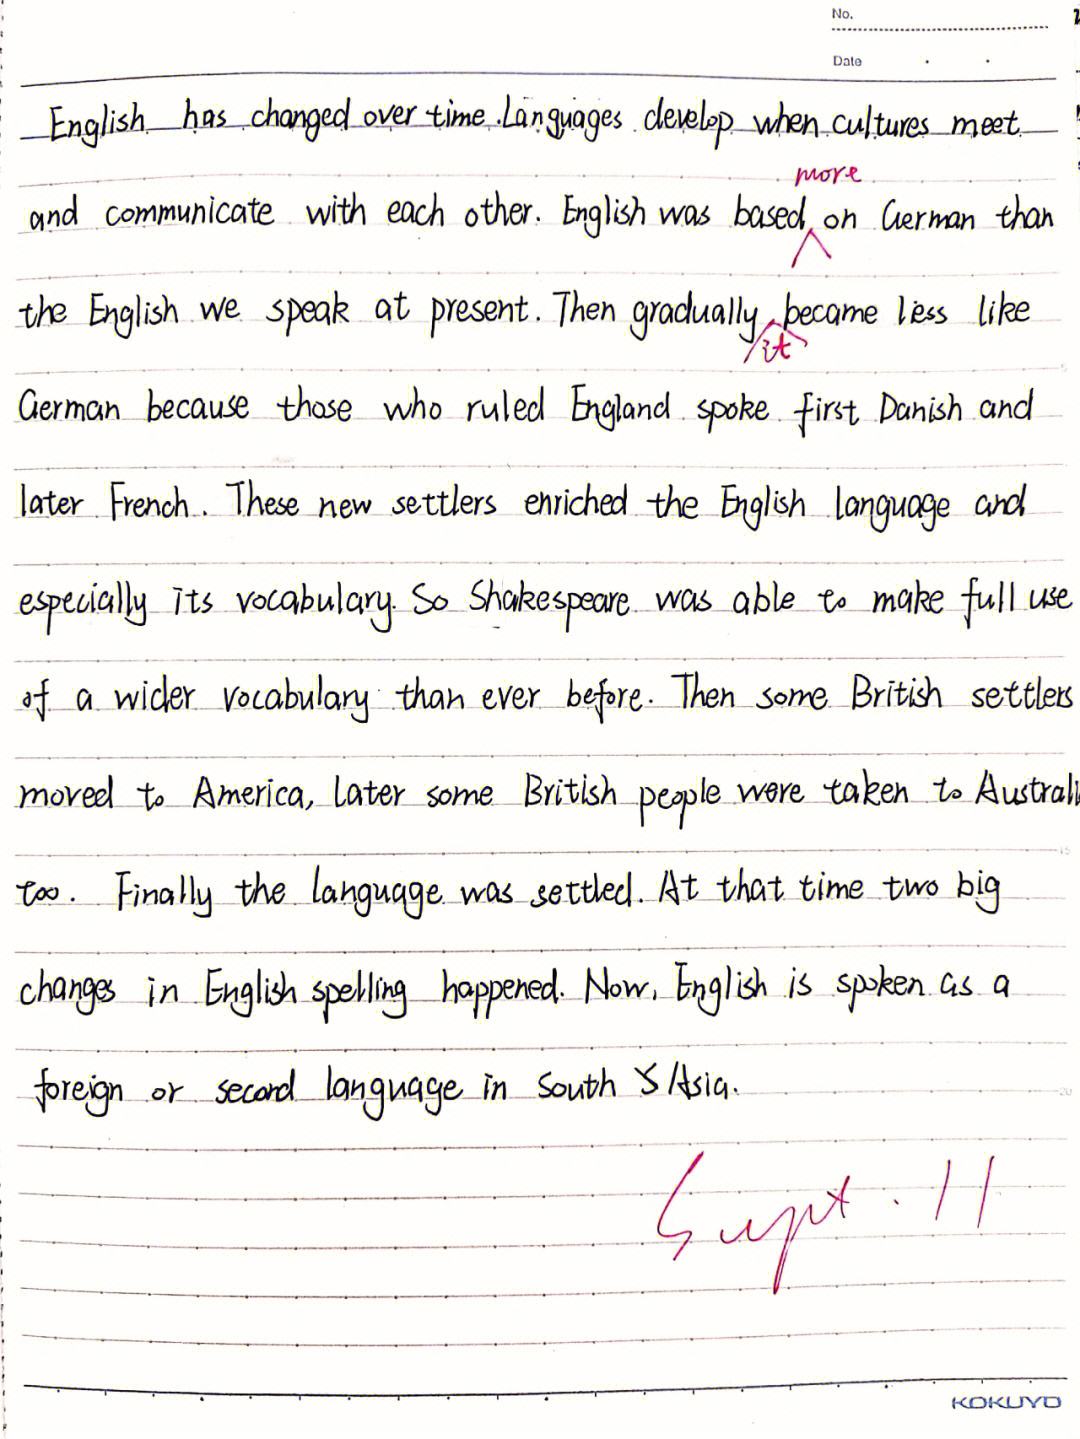 No.
Date
English has changed over time. Languages develop when cultures meet
more
and communicate with each other. English was based on German than
the English we speak at present. Then gradually became less like
it
German because those who ruled England spoke first Danish and
later French. These new settlers enriched the English language and
especially its vocabulary. So Shakespeare was able to make full use
of a wider vocabulary than ever before. Then some British settlers
moved to America, later some British people were taken to Australi
too. Finally the language was settled. At that time two big
changes in English spelling happened. Now, English is spoken as a
foreign or second language in South Asia.
Sept. 11
KOKUYO